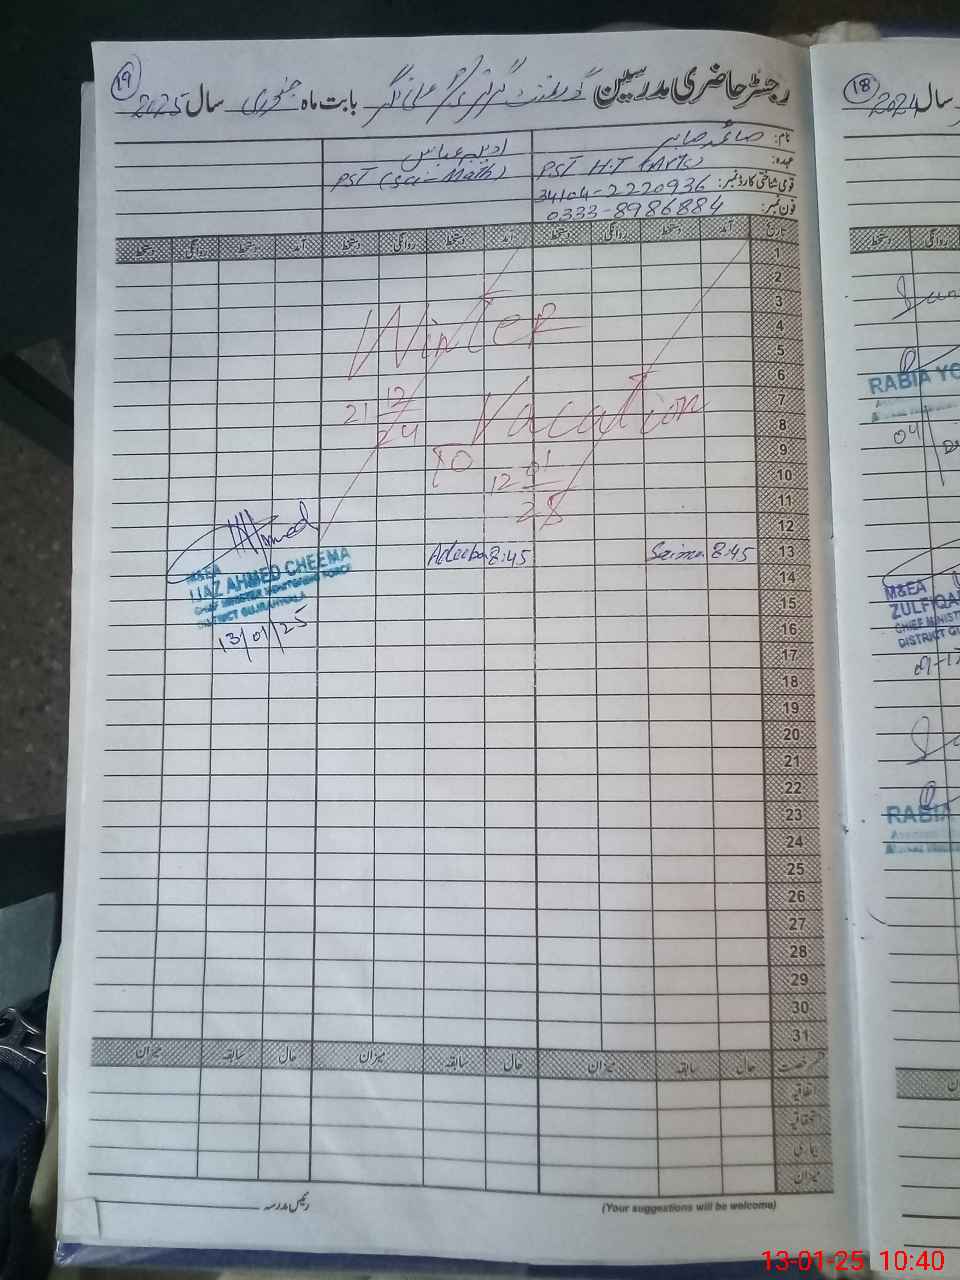 19
رجسٹر حاضری مدرسین گورنمنٹ گرلز بابت ماہ جنوری سال 2025
نام: صائمہ صابر
ادیبہ عباس
عہدہ: PST H.T (Arts)
PST (Sci-Math)
قومی شناختی کارڈ نمبر: 34104-2220936
فون نمبر: 0333-8986884
تاریخ آمد دستخط روانگی دستخط آمد دستخط روانگی دستخط آمد دستخط روانگی دستخط
1
2
3
4
5
6
7
8
9
10
11
12
13
14
15
16
17
18
19
20
21
22
23
24
25
26
27
28
29
30
31
Winter
Vacation
21 12
24
TO
12 01
25
Saima 8:45
Adeeba 8:45
Ahmed
M&EA
IJAZ AHMED CHEEMA
CHIEF MINISTER MONITORING FORCE
DISTRICT GUJRANWALA
13/01/25
قسم رخصت حال سابقہ میزان حال سابقہ میزان حال سابقہ میزان
اتفاقیہ
استحقاقیہ
بیماری
میزان
رئیس مدرسہ
(Your suggestions will be welcome)
18
سال 2024
دستخط روانگی
RABIA YO
04
M&EA
ZULFIQA
CHIEF MINIST
DISTRICT GU
RABIA
13-01-25 10:40